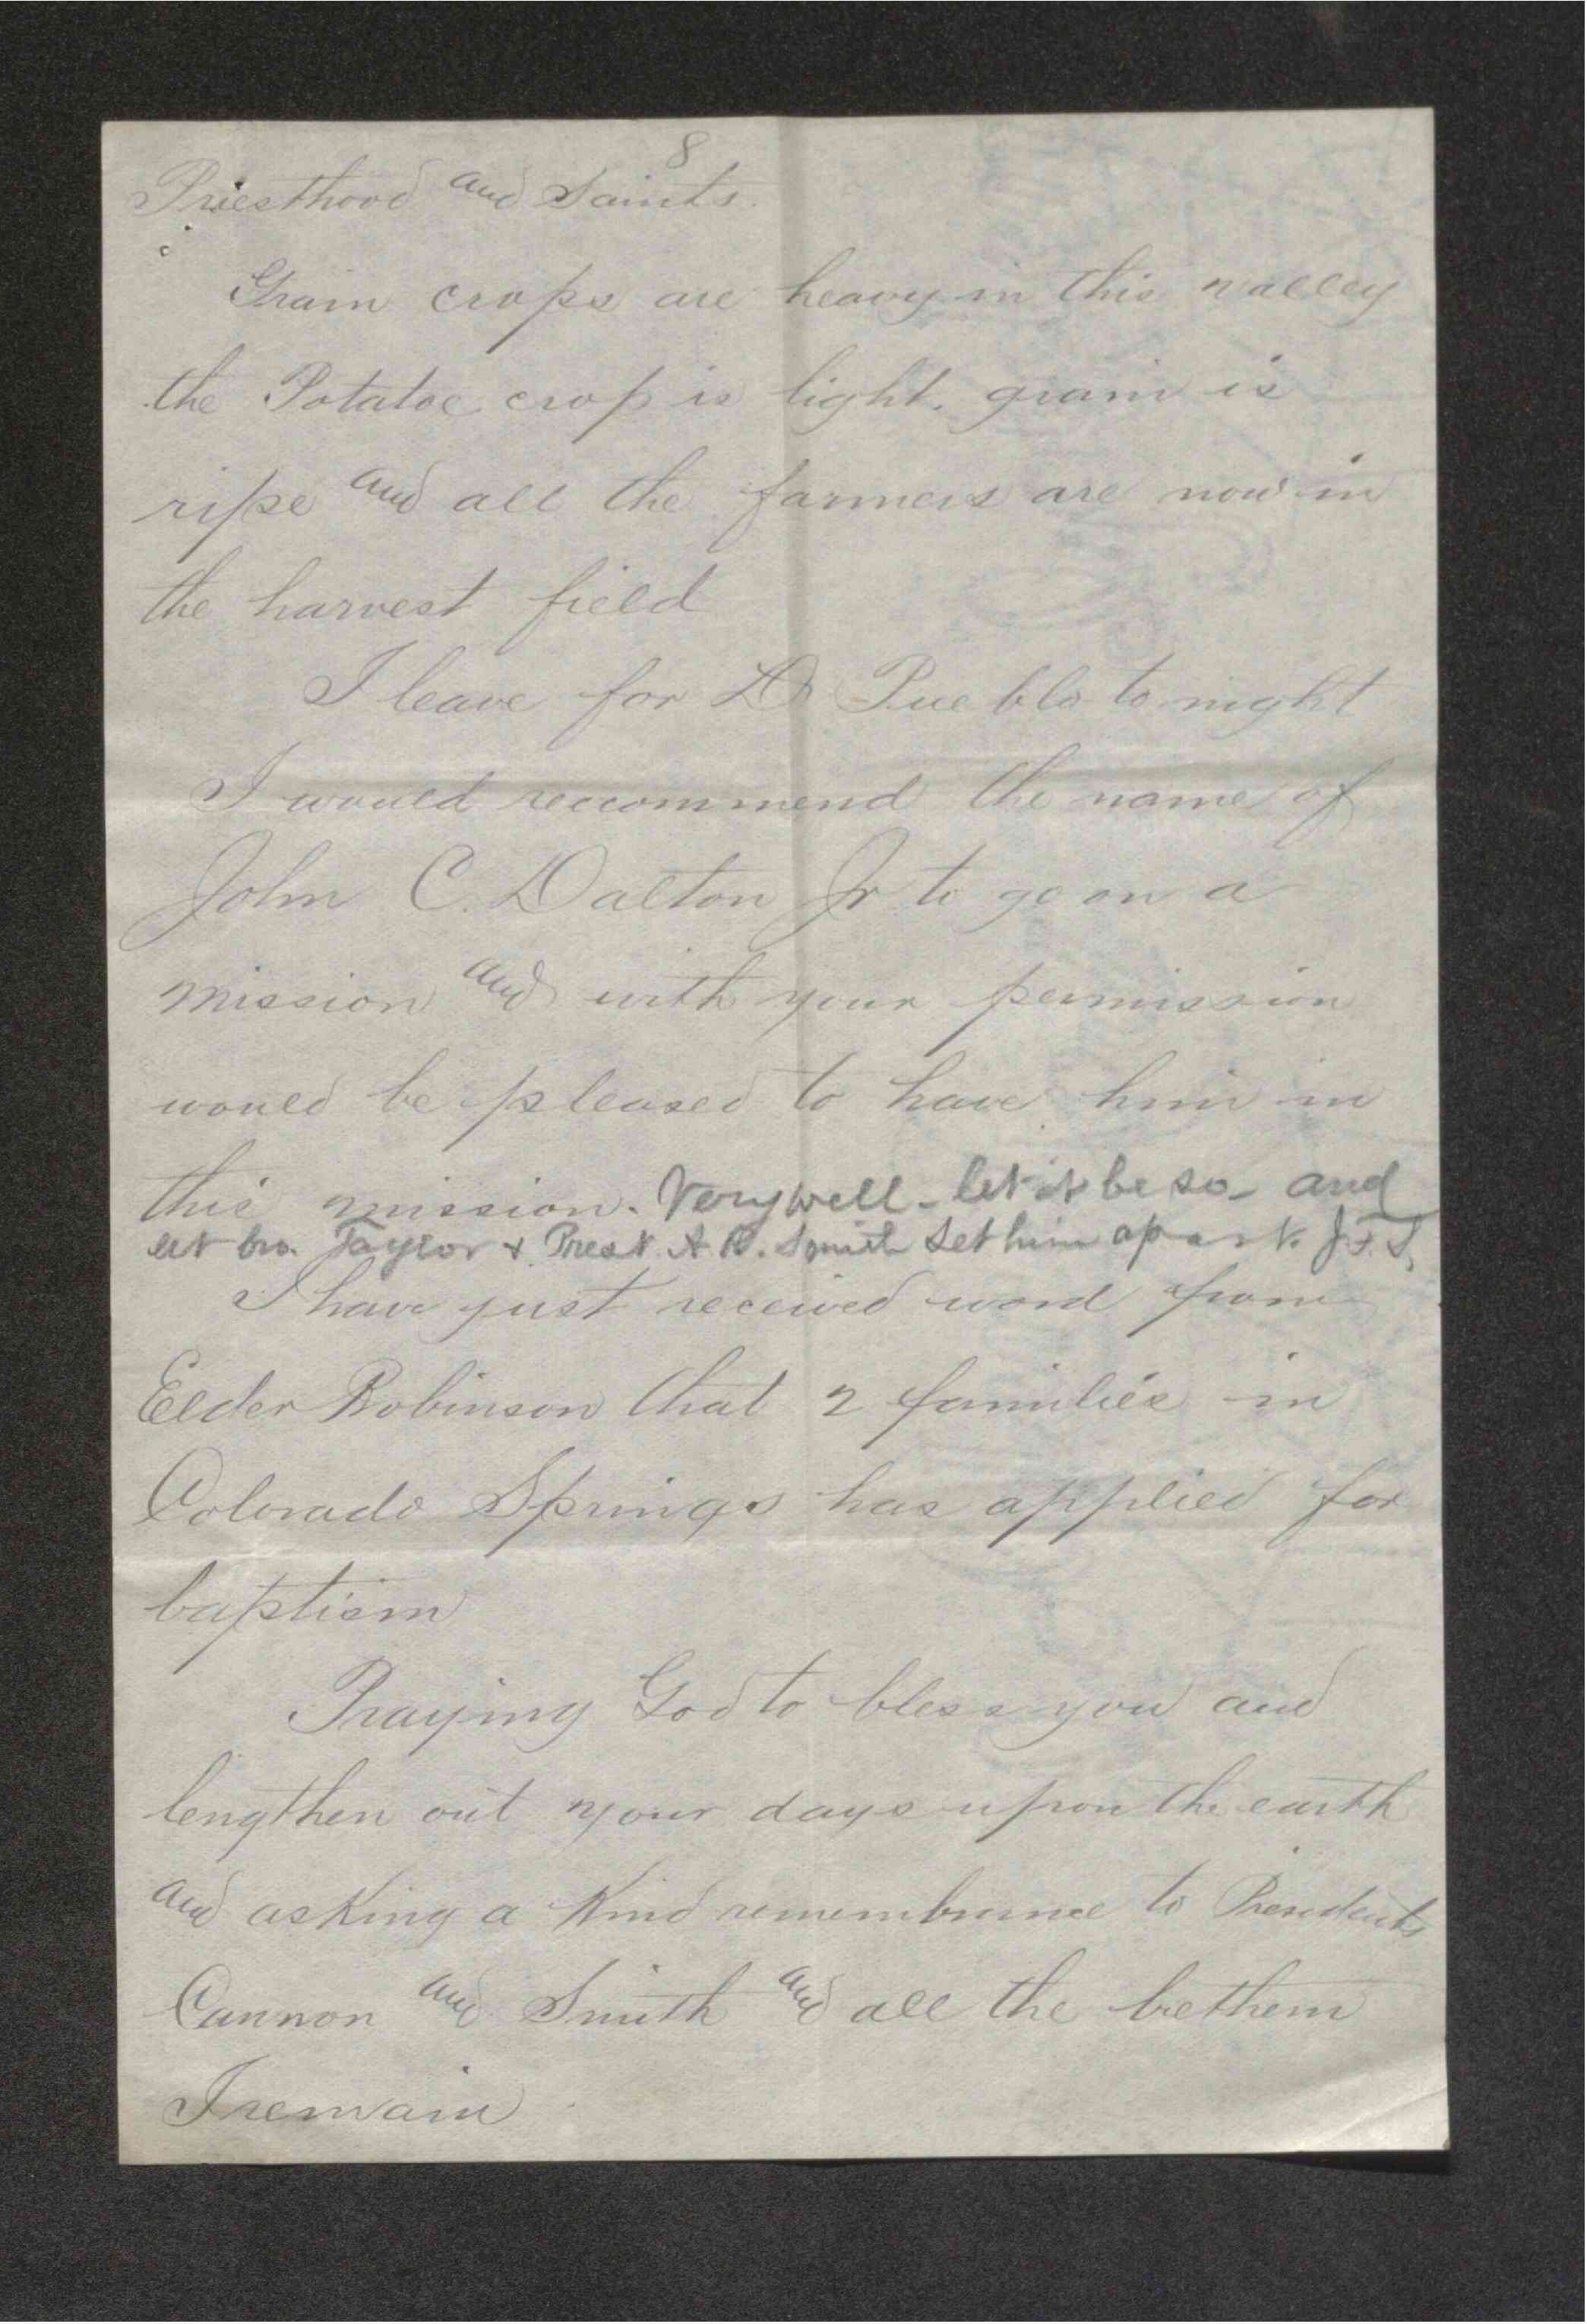 8
Priesthood and Saints.
Grain crops are heavy in this valley
the Potatoe crop is light. grain is
ripe and all the farmers are now in
the harvest field
I leave for Pueblo to night
I would reccommend the name of
John C. Dalton Jr to go on a
mission and with your permission
would be pleased to have him in
this mission. Very well - let it be so - and
let bro. Taylor & Prest. A. R. Smith set him apart. J. F. S.
I have just received word from
Elder Robinson that 2 families in
Colorado Springs has applied for
baptism
Praying God to bless you and
lengthen out your days upon the earth
and asking a Kind remembrance to Presidents
Cannon and Smith and all the brethern
I remain